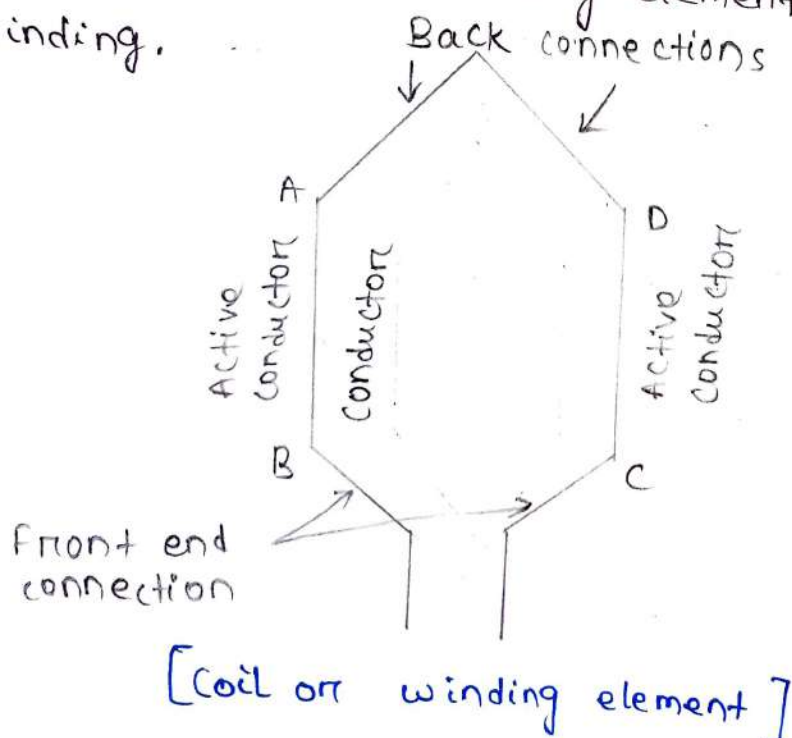 element
inding.
Back connections
A
D
Active
conductor
conductor
Active
conductor
B
C
Front end
connection
[Coil or winding element]